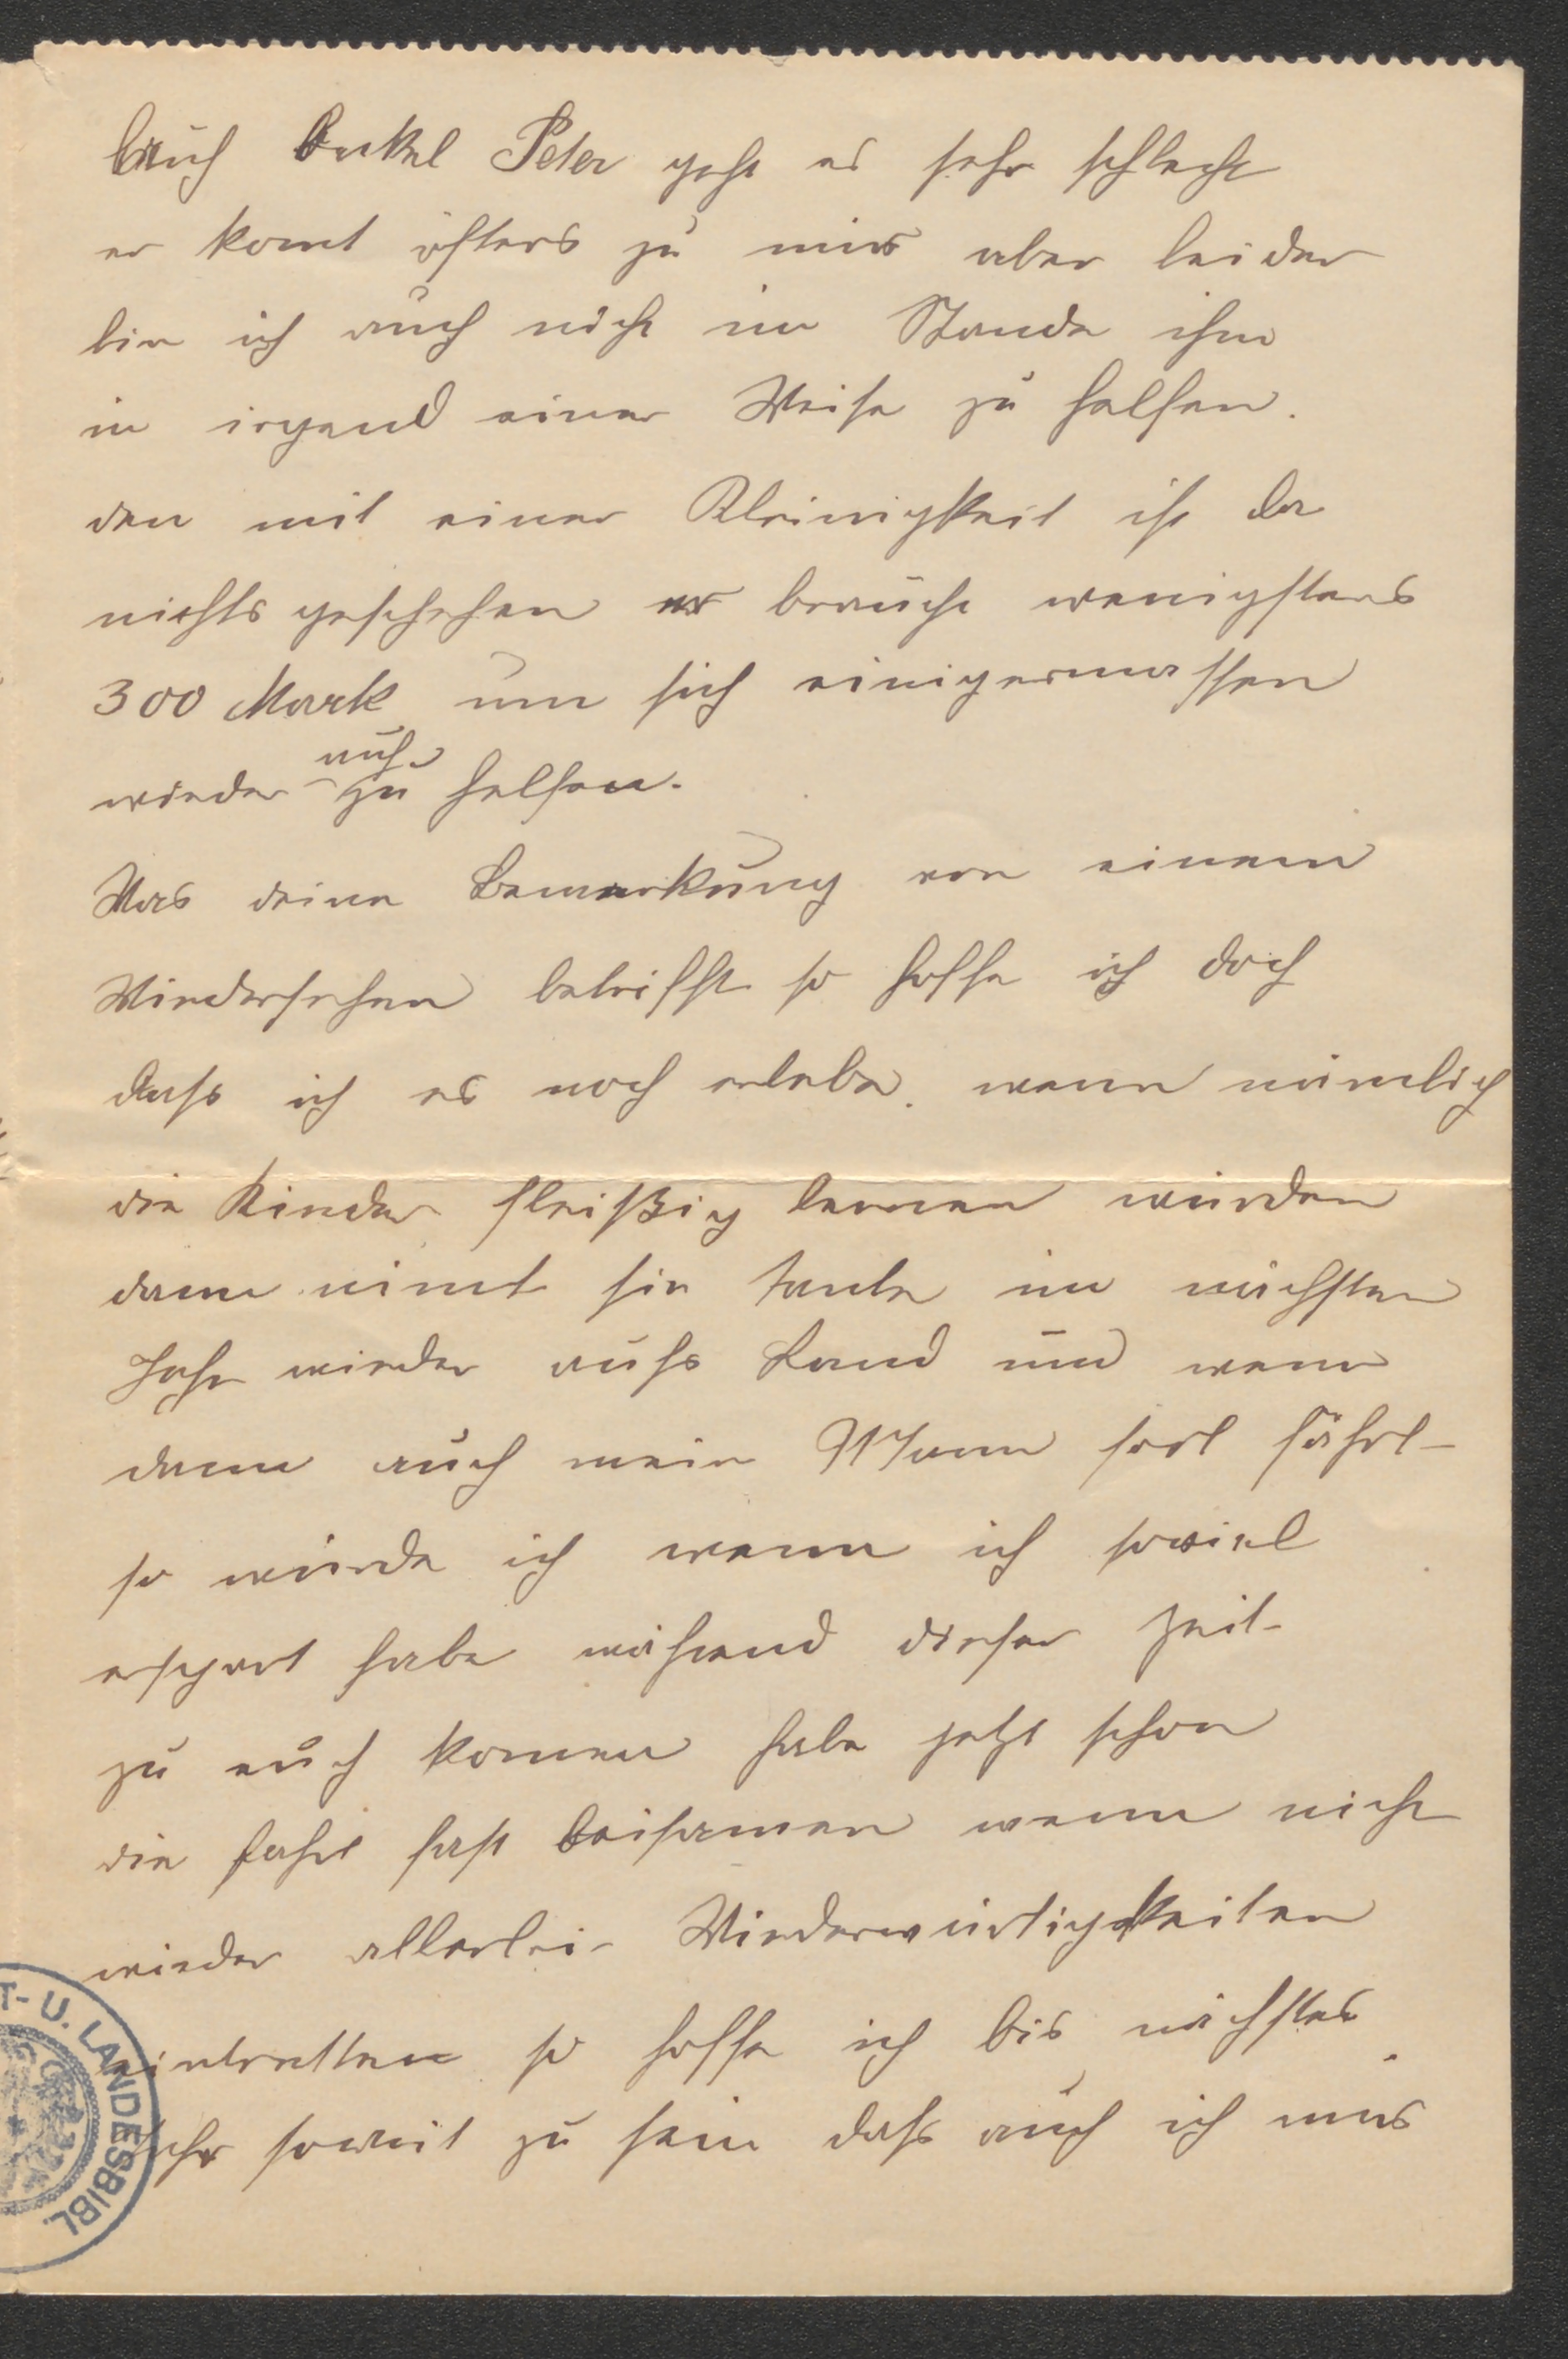 Auch Onkel Peter geht es sehr schlecht
er komt öfters zu mir aber leider
bin ich auch nicht im Stande ihm
in irgend einer Weise zu helfen.
den mit einer Kleinigkeit ist da
nichts geschehen er braucht wenigstens
300 Mark um sich einigermassen
auf
wieder zu helfen.
Was deine Bemerkung von einem
Wiedersehen betrifft so hoffe ich doch
dass ich es noch erlebe. wenn nämlich
die Kinder fleißig lernen würden
dann nimt sie tante im nächsten
Jahr wieder aufs Land und wenn
dann auch mein Mann fort fährt
so würde ich wenn ich soviel
erspart habe während dieser Zeit
zu euch komen habe jetzt schon
die fahrt fast beisamen wenn nicht
wieder allerlei Wiederwärtigkeiten
eintretten so hoffe ich bis nächstes
Jahr soweit zu sein dass auch ich mir
T- U. LANDESBIBL.